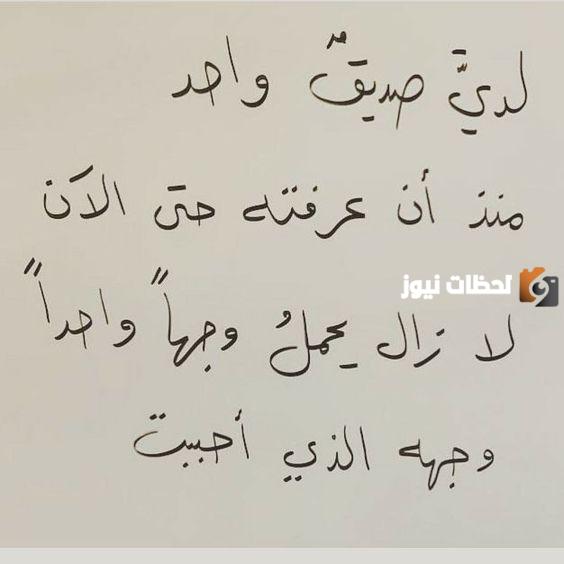 لديَّ صديقٌ واحد
منذ أن عرفته حتى الآن
لحظات نيوز
لا زال يحملُ وجهاً واحداً
وجهه الذي أحببت